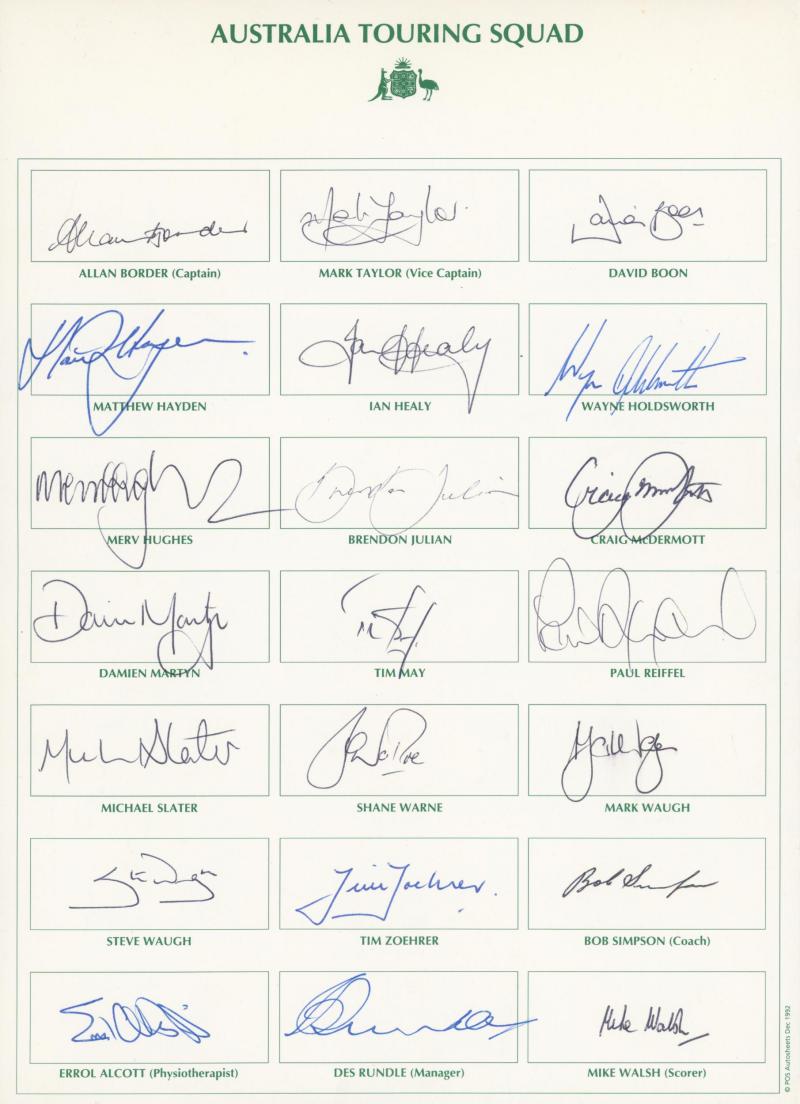 AUSTRALIA TOURING SQUAD
Allan Border
Mark Taylor
David Boon
ALLAN BORDER (Captain)
MARK TAYLOR (Vice Captain)
DAVID BOON
Ian Healy
Wayne Holdsworth
MATTHEW HAYDEN
IAN HEALY
WAYNE HOLDSWORTH
Merv Hughes
Brendon Julian
Craig McDermott
MERV HUGHES
BRENDON JULIAN
CRAIG McDERMOTT
Damien Martyn
DAMIEN MARTYN
TIM MAY
PAUL REIFFEL
Michael Slater
MICHAEL SLATER
SHANE WARNE
MARK WAUGH
Tim Zoehrer
Bob Simpson
STEVE WAUGH
TIM ZOEHRER
BOB SIMPSON (Coach)
Mike Walsh
ERROL ALCOTT (Physiotherapist)
DES RUNDLE (Manager)
MIKE WALSH (Scorer)
© POS Autosheets Dec 1992